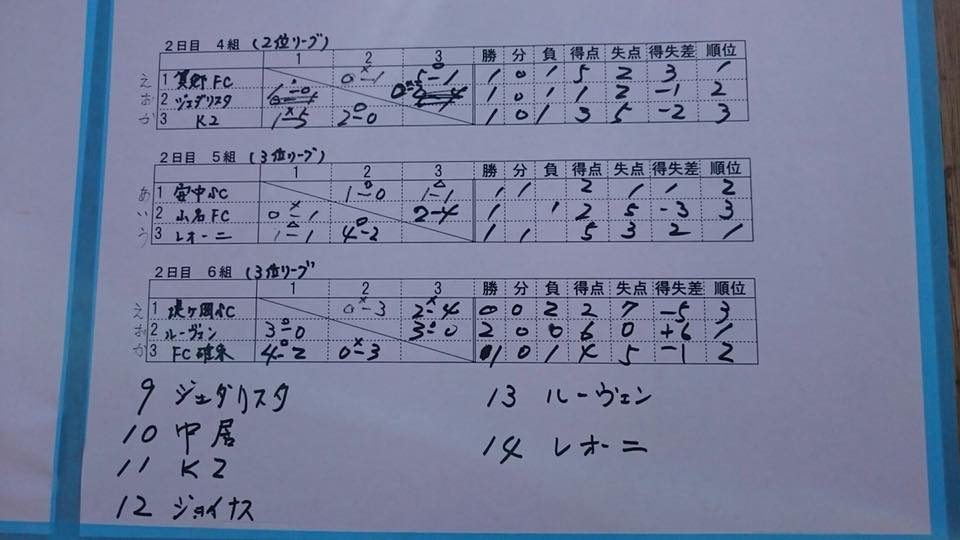 2日目 4組 (2位リーグ)
1 2 3 勝 分 負 得点 失点 得失差 順位
え 1 FC 0-1 5-1 1 0 1 5 2 3 1
お 2 ジェダリスタ 1-0 1 0 1 1 2 -1 2
か 3 K2 1-5 2-0 1 0 1 3 5 -2 3
2日目 5組 (3位リーグ)
1 2 3 勝 分 負 得点 失点 得失差 順位
あ 1 安中SC 1-0 1-1 1 1 2 1 1 2
い 2 山名FC 0-1 2-4 1 1 2 5 -3 3
う 3 レオーニ 1-1 4-2 1 1 5 3 2 1
2日目 6組 (3位リーグ
1 2 3 勝 分 負 得点 失点 得失差 順位
え 1 ヶ岡SC 0-3 2-4 0 0 2 2 7 -5 3
お 2 ルーヴェン 3-0 3-0 2 0 0 6 0 +6 1
か 3 FC碓東 4-2 0-3 1 0 1 4 5 -1 2
9 ジェダリスタ 13 ルーヴェン
10 中居 14 レオーニ
11 K2
12 ジョイナス